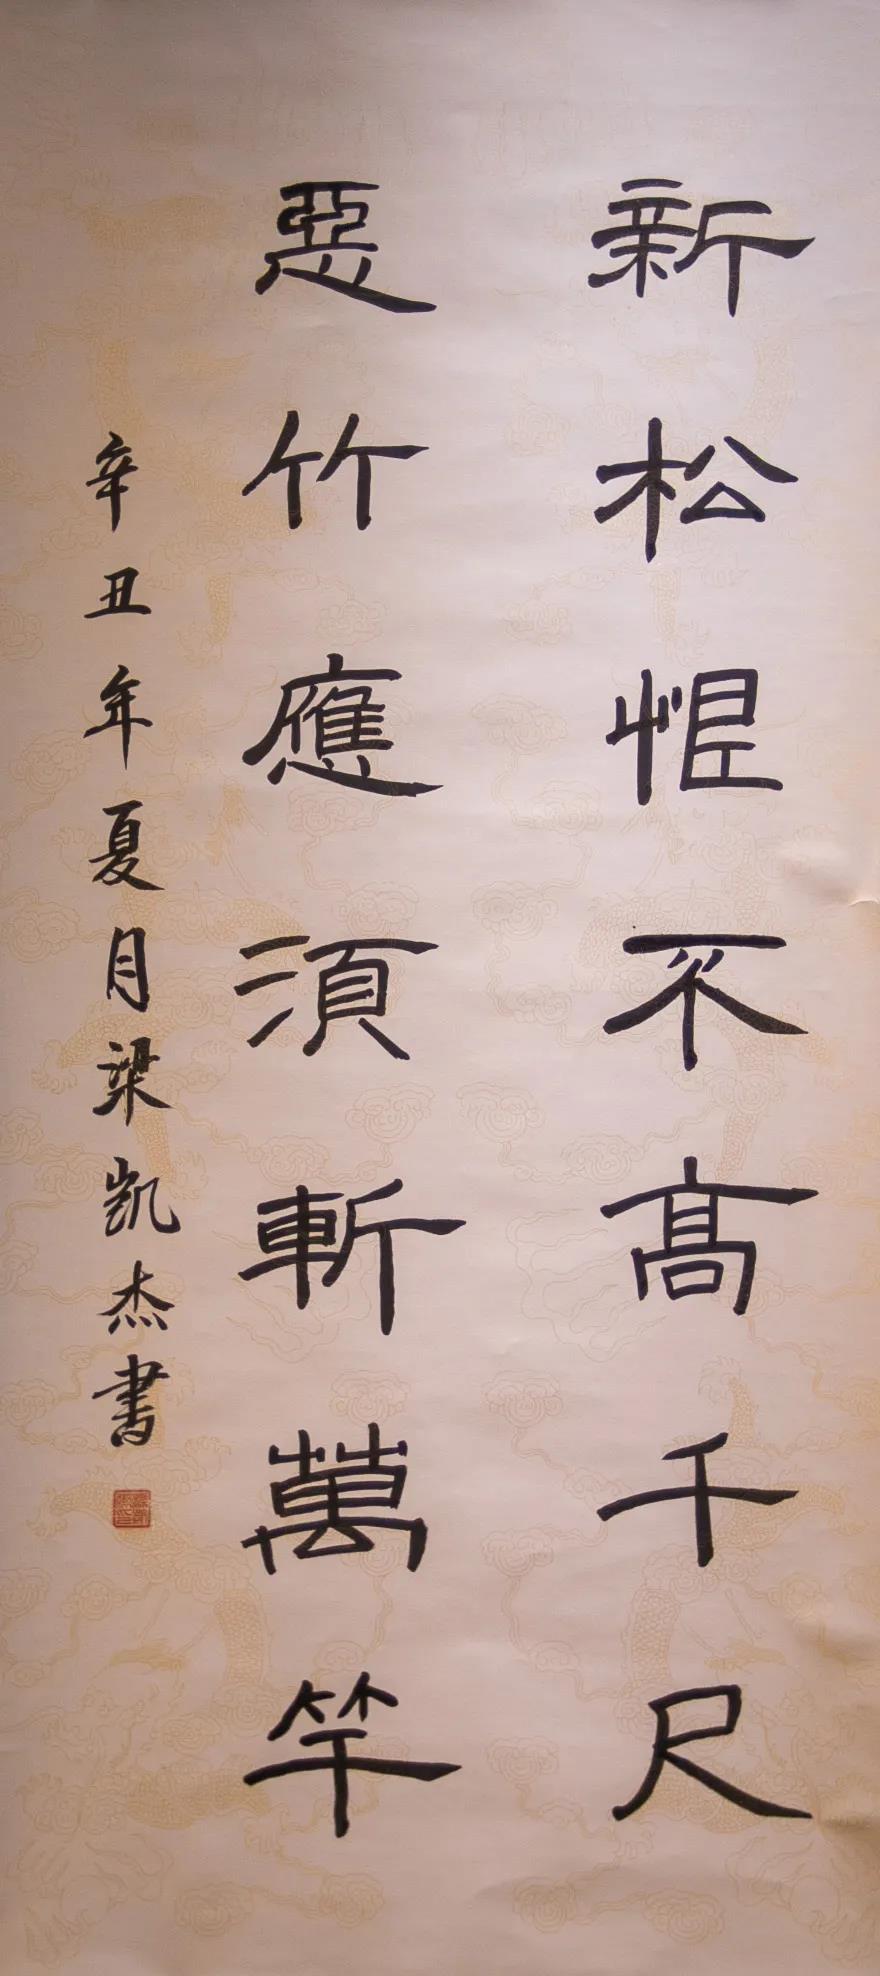 新松恨不高千尺
惡竹應須斬萬竿
辛丑年夏月梁凯杰書